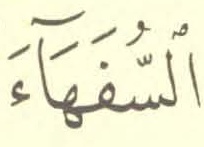 ٱلسُّفَهَآءَ